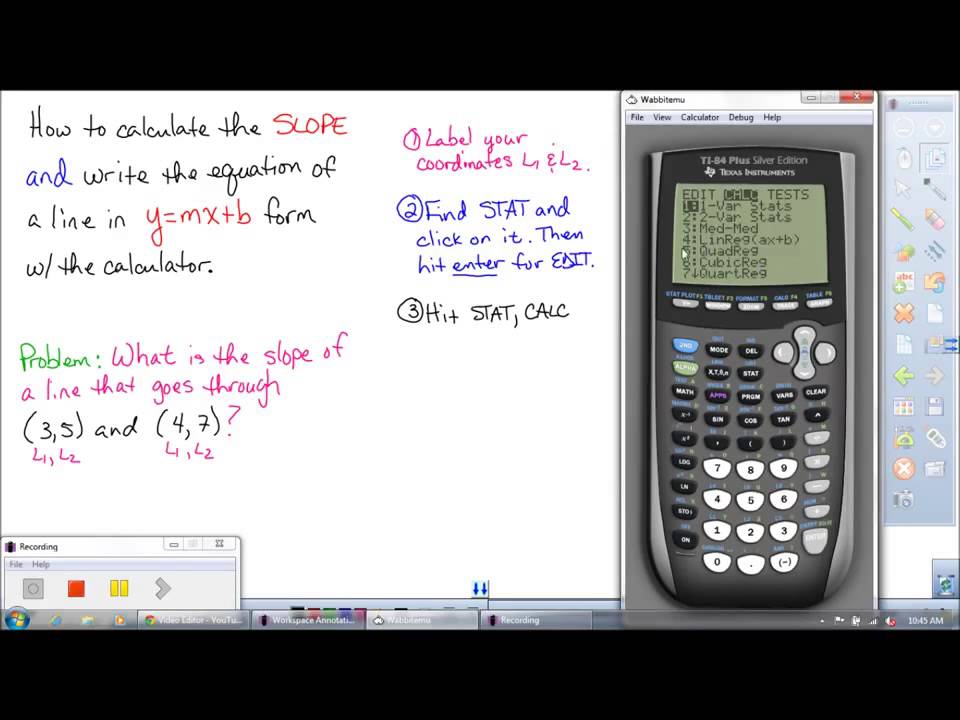 How to calculate the SLOPE
and write the equation of
a line in y=mx+b form
w/ the calculator.
Problem: What is the slope of
a line that goes through
(3,5) and (4,7)?
L1, L2 L1, L2
① Label your
coordinates L1 & L2.
② Find STAT and
click on it. Then
hit enter for EDIT.
③ Hit STAT, CALC
Wabbitemu
File View Calculator Debug Help
TI-84 Plus Silver Edition
TEXAS INSTRUMENTS
EDIT CALC TESTS
1:1-Var Stats
2:2-Var Stats
3:Med-Med
4:LinReg(ax+b)
5:QuadReg
6:CubicReg
7↓QuartReg
STAT PLOT F1 TBLSET F2 FORMAT F3 CALC F4 TABLE F5
Y= WINDOW ZOOM TRACE GRAPH
2ND MODE DEL
ALPHA X,T,θ,n STAT
MATH APPS PRGM VARS CLEAR
SIN COS TAN ^
x² , ( )
LOG 7 8 9 ×
LN 4 5 6 −
STO› 1 2 3 +
ON 0 . (−) ENTER
Recording
File Help
Video Editor - YouTu...
Workspace Annotati...
Wabbitemu
Recording
10:45 AM